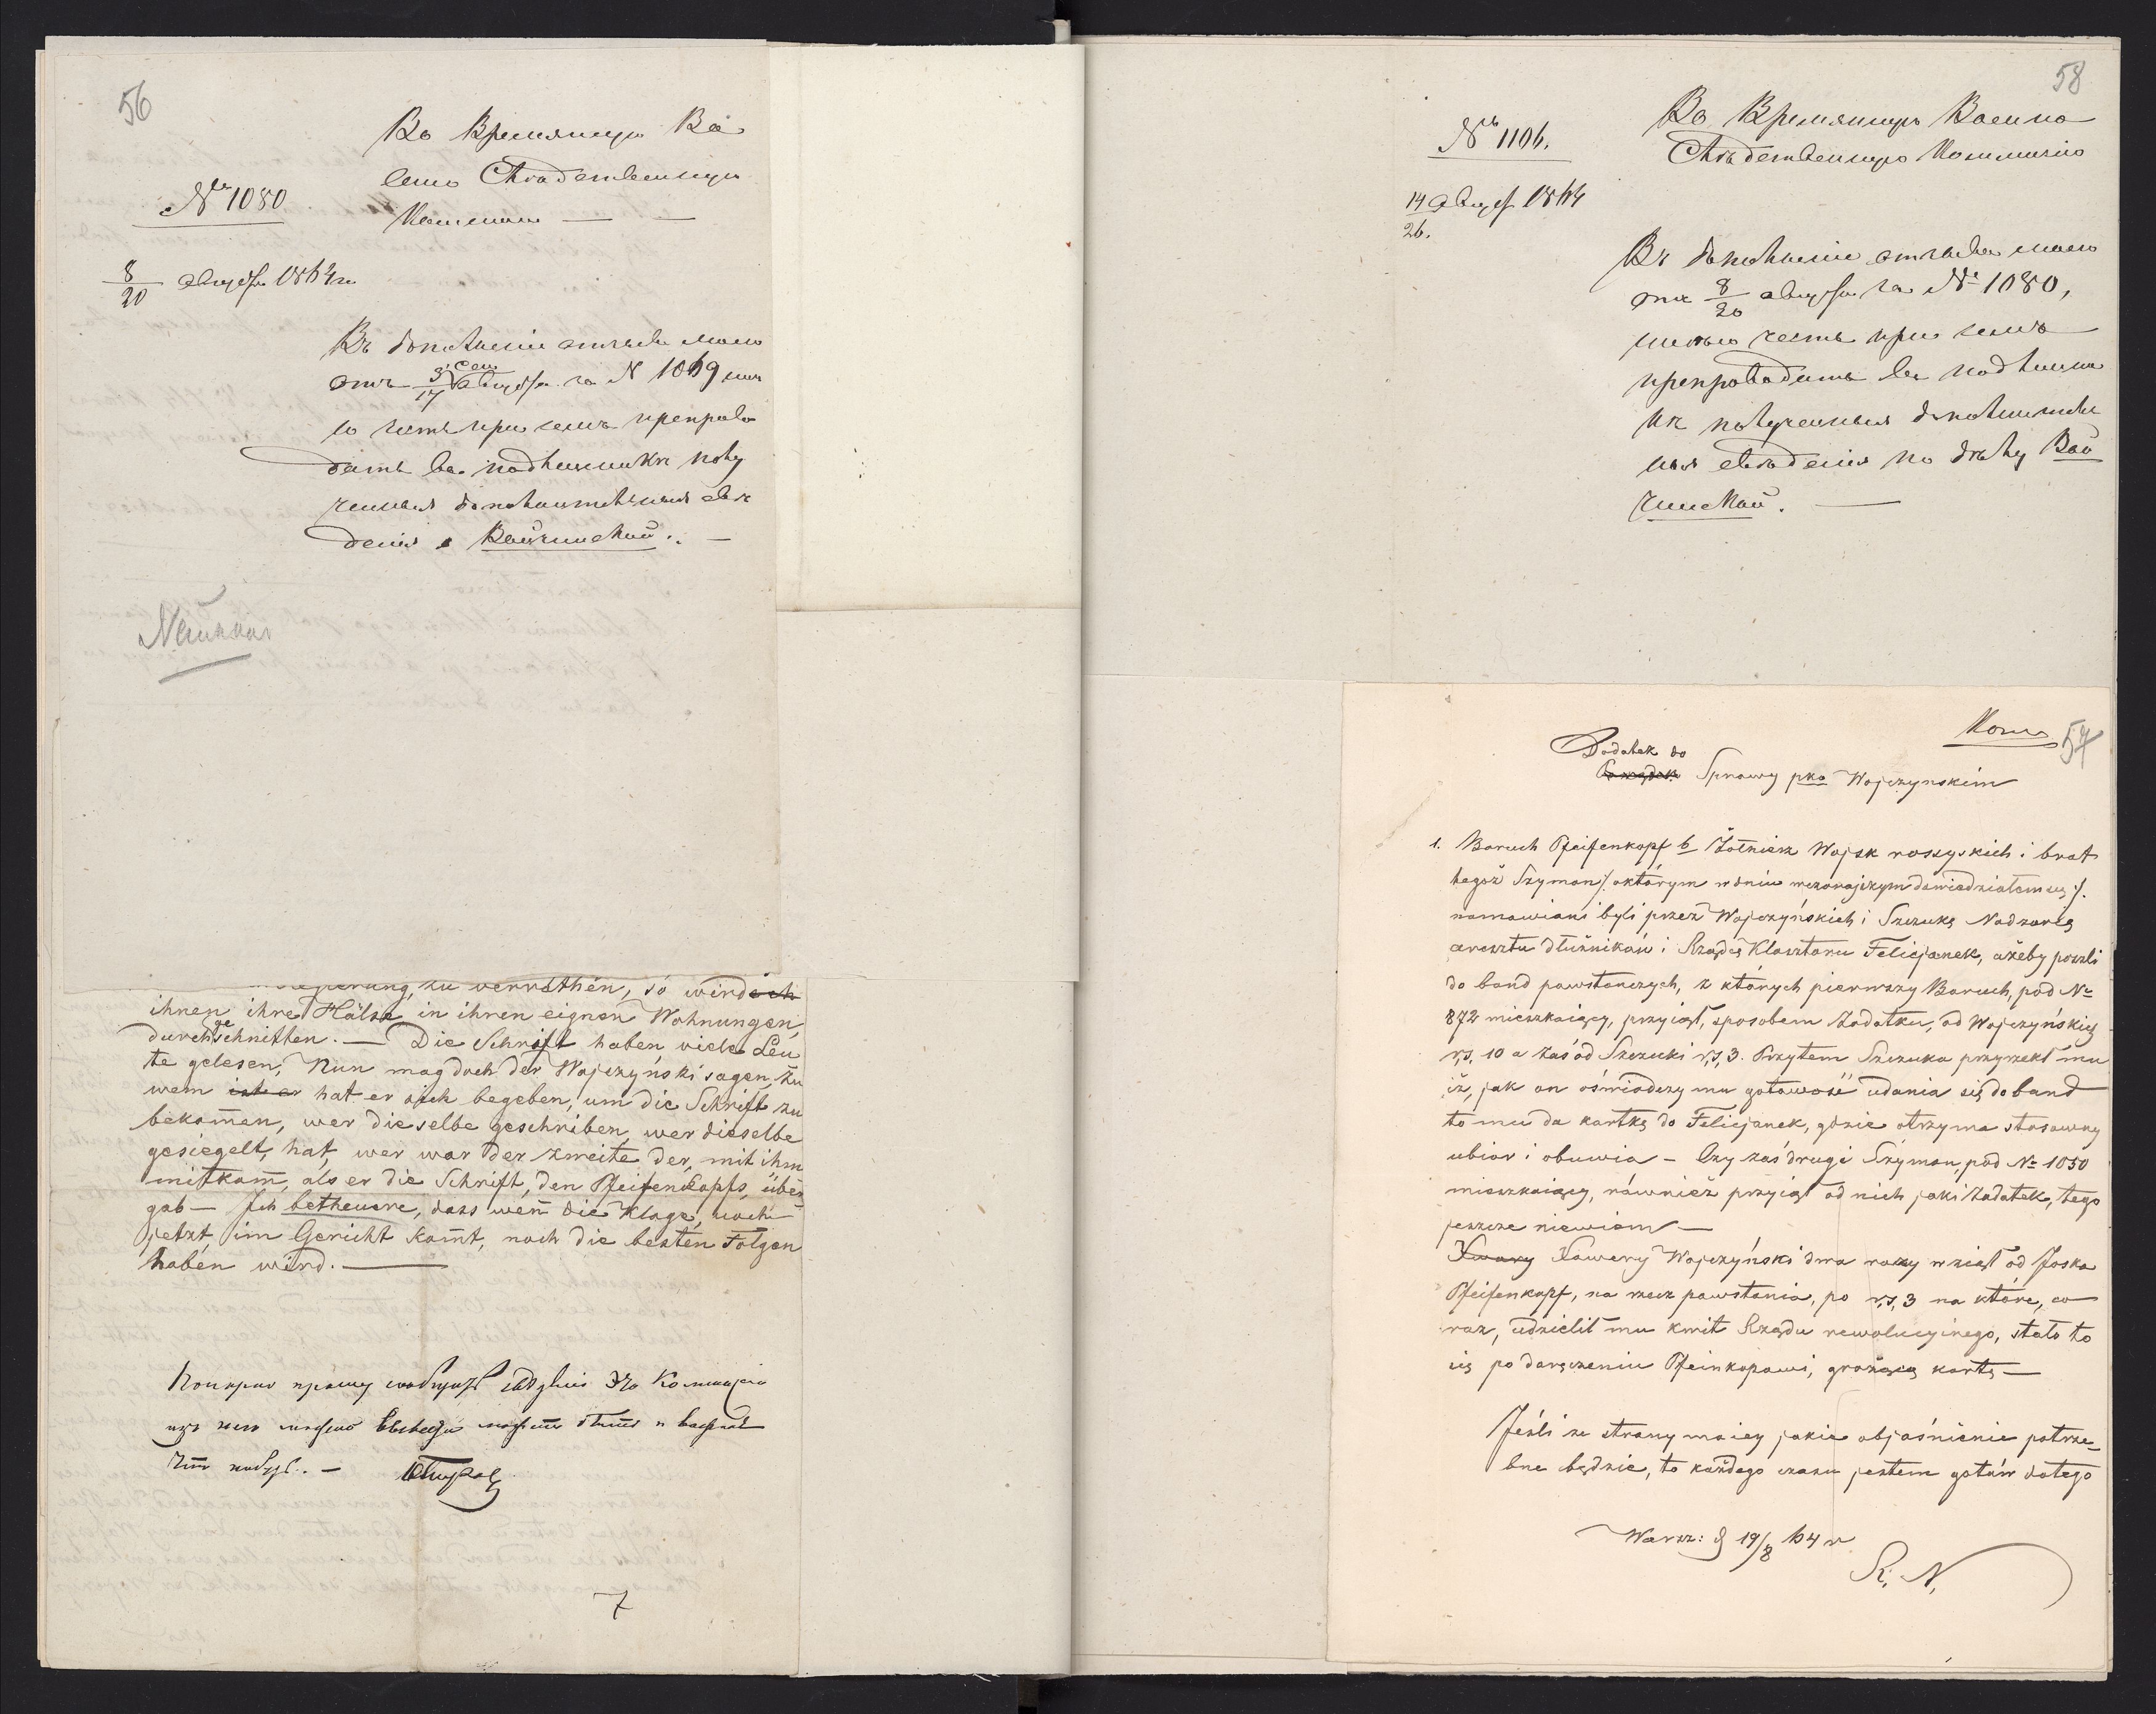 56
Во Временную Во
енно Следственную
Коммисию
№ 1080
8/20 августа 1864 г.
Въ дополнение отзыва моего
отъ 5/17 сего августа за № 1069 имѣ
ю честь при семъ препрово
дить въ подлинникѣ полу
ченныя дополнительныя свѣ
денiя о Войчинской. —
zu verrathen, so wird
ihnen ihre Hälse in ihren eignen Wohnungen,
durchgeschnitten. — Die Schrift haben viele Leu
te gelesen, Nun mag doch der Wojczyński sagen, zu
wem ist er hat er sich begeben, um die Schrift zu
bekomen, wer dieselbe geschriben, wer dieselbe
gesiegelt, hat, wer war der zweite der, mit ihm
mitkam, als er die Schrift, den Pfeifenkopfs, über
gab — Ich betheuere, dass wen die Klage, noch
jetzt, im Gericht komt, noch die besten Folgen
haben wird. —
7
58
№ 1106.
14/26 август 1864
Во Временную Военно
Слѣдственную Коммисiю
Въ дополненiе отзыва моего
отъ 8/20 августа за № 1080,
имѣю честь при семъ
препроводить въ подлинни
кѣ полученныя дополнитель
ныя свѣденiя по дѣлу Вой
чинской. —
57
Dodatek do
Sprawy pko Wojczynskim
1. Baruch Pfeifenkopf b Żołnierz Wojsk rossyskich i brat
tegoż Szymon /. o którym w dniu wczorajszym dowiedziałem się /.
namawiani byli przez Wojczyńskich i Szczukę Nadzorcę
aresztu dłużników i Rządcę Klasztoru Felicjanek, ażeby poszli
do band powstańczych, z których pierwszy Baruch, pod №
872 mieszkaiący, przyiął, sposobem Zadatku, od Wojczyńskiej
rs. 10 a zaś od Szczuki rs. 3. Przytem Szczuka przyrzekł mu
iż, jak on oświadczy mu gotowość udania się do band
to mu da kartkę do Felicjanek, gdzie otrzyma stosowny
ubior i obuwia — Czy zaś drugi Szymon, pod № 1050
mieszkaiący, również przyiął od nich jaki Zadatek, tego
jeszcze niewiem —
Xawery Xawery Wojczyński dwa razy wziął od Joska
Pfeifenkopf, na rzecz powstania, po rs. 3 na które, co
raz, udzielił mu kwit Rządu rewolucyjnego, stało to
się po doręczeniu Pfeinkopowi, grożącą kartę —
Jeśli ze strony moiey jakie objaśnienie potrze-
bne będzie, to każdego czasu jestem gotów dotego
Warsz: d 19/8 64 r
R. N.